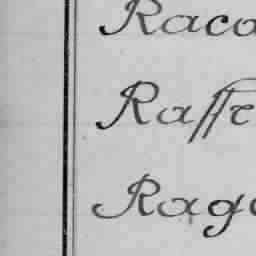 Raco
Raffr
Rago